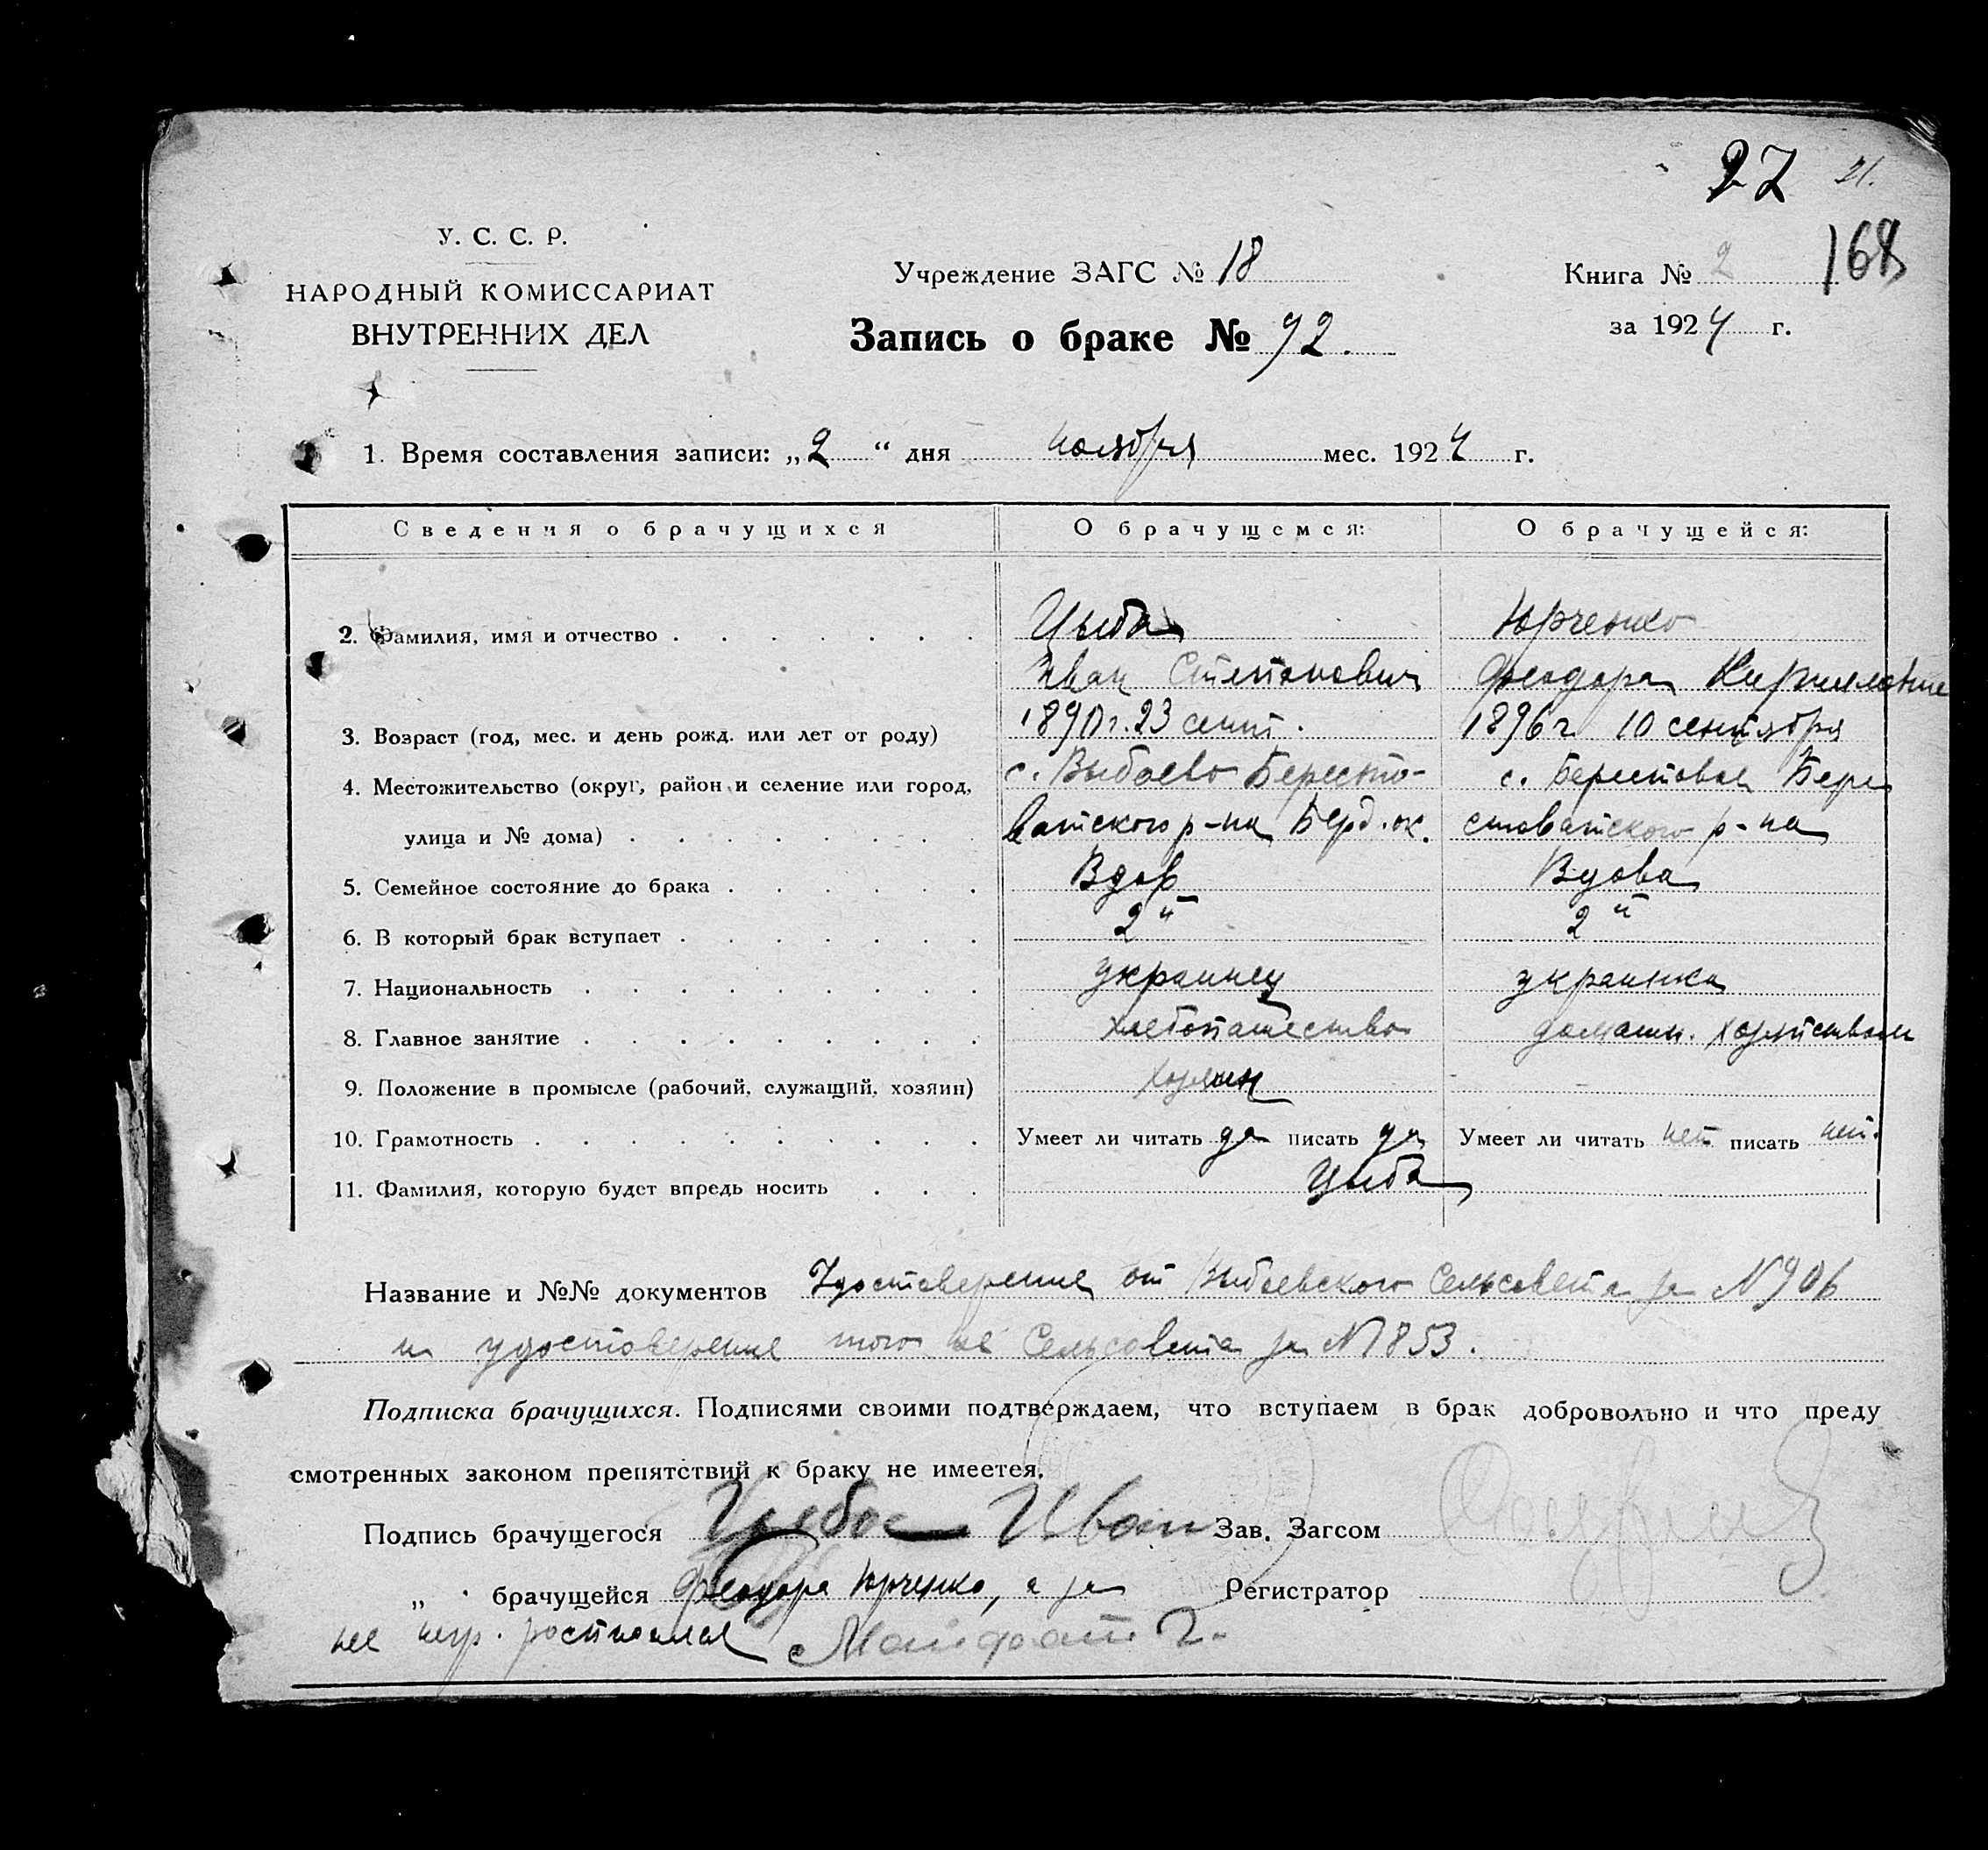 27 21.
У. С. С. Р.
НАРОДНЫЙ КОМИССАРИАТ
ВНУТРЕННИХ ДЕЛ
Учреждение ЗАГС № 18
Запись о браке № 92.
Книга № 2
168
за 1924 г.
1. Время составления записи: „2“ дня ноября мес. 1924 г.
Сведения о брачущихся О брачущемся: О брачущейся:
2. Фамилия, имя и отчество Цыба Юрченко
Иван Степанович Феодора Кирилловна
3. Возраст (год, мес. и день рожд. или лет от роду) 1890 г. 23 сент. 1896 г 10 сентября
4. Местожительство (округ, район и селение или город, с. Выбоево Бересто- с. Берестовая Бере
улица и № дома) ватского р-на Берд. ок. стоватского р-на
5. Семейное состояние до брака Вдов Вдова
6. В который брак вступает 2й 2й
7. Национальность украинец украинка
8. Главное занятие хлебопашество домашн. хозяйством
9. Положение в промысле (рабочий, служащий, хозяин) хозяин –
10. Грамотность Умеет ли читать да писать да Умеет ли читать нет писать нет.
11. Фамилия, которую будет впредь носить Цыба
Название и №№ документов Удостоверение от Выбоевского Сельсовета за N 906
и удостоверение того же Сельсовета за N 853.
Подписка брачущихся. Подписями своими подтверждаем, что вступаем в брак добровольно и что преду
смотренных законом препятствий к браку не имеется.
Подпись брачущегося Цыба Иван Зав. Загсом
„ брачущейся Феодора Юрченко, а за Регистратор
нее негр.